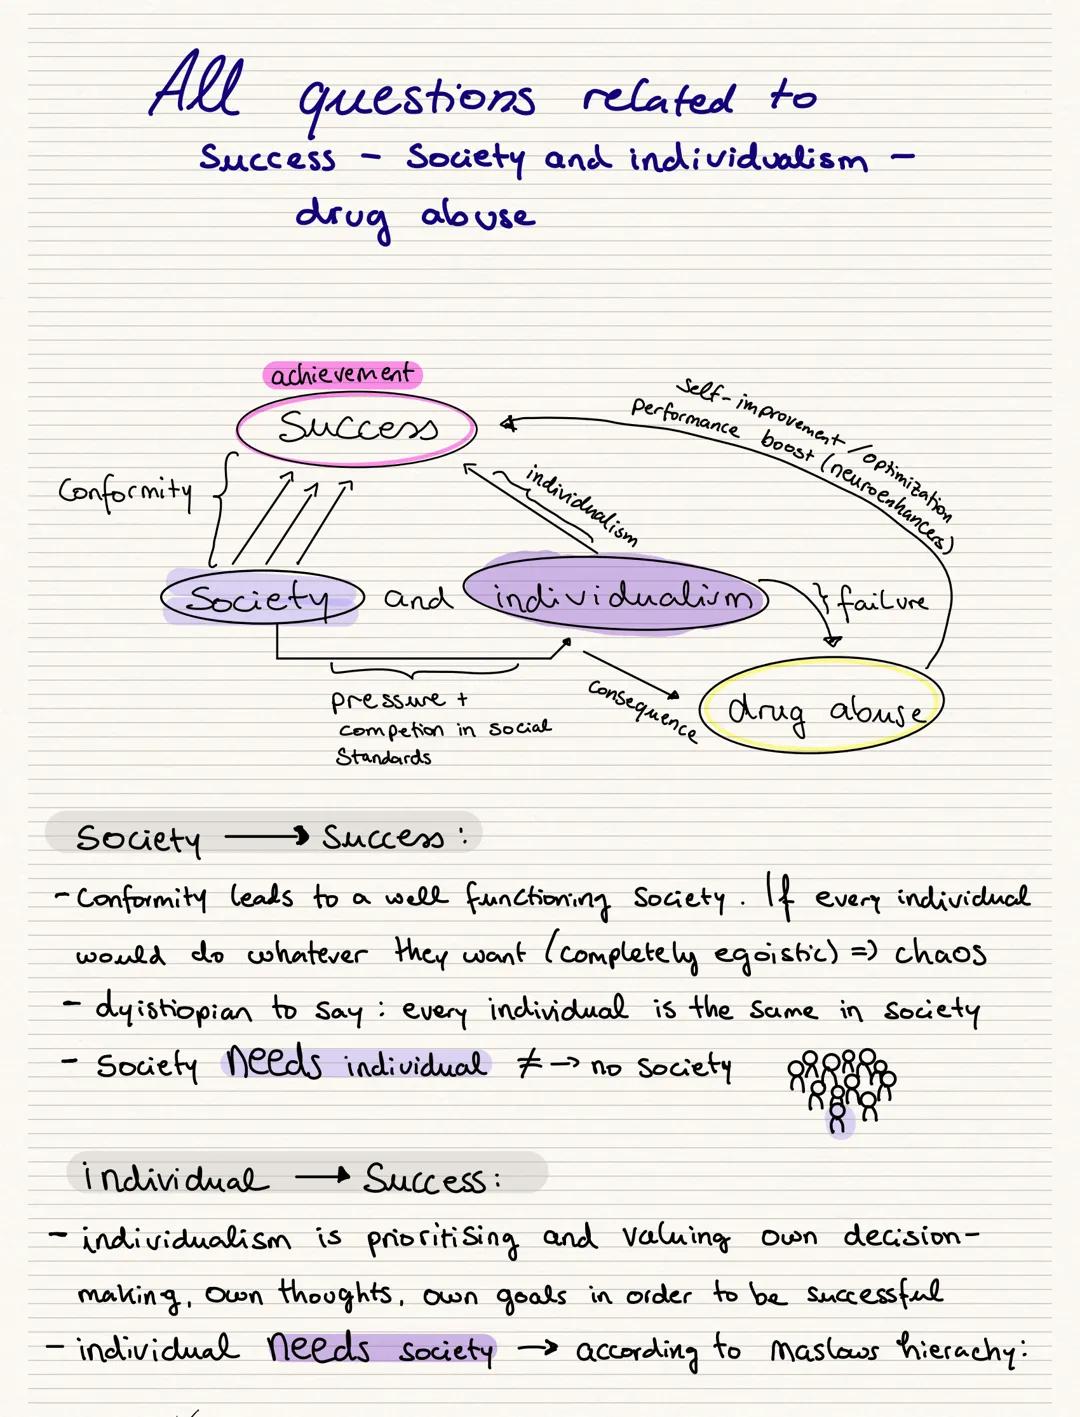 All questions related to
Success - Society and individualism -
drug abuse
achievement
Success
Self-improvement/optimization
Performance boost (neuroenhancers)
individualism
Conformity
Society and individualism
failure
pressure +
competion in social
Standards
consequence
drug abuse
Society → Success:
- Conformity leads to a well functioning Society. If every individual
would do whatever they want (completely egoistic) => chaos
- dyistiopian to say: every individual is the same in society
- Society needs individual ≠ → no society
individual → Success:
- individualism is prioritising and valuing own decision-
making, own thoughts, own goals in order to be successful
- individual needs society → according to Maslows hierachy: